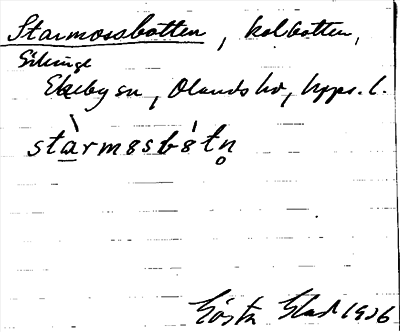 Starmossbotten, kolbotten,
Giringe
Ekeby sn, Olands hd, Upps. l.
stàrmɵsbɵ̀tn̥
Gösta Glad 1926